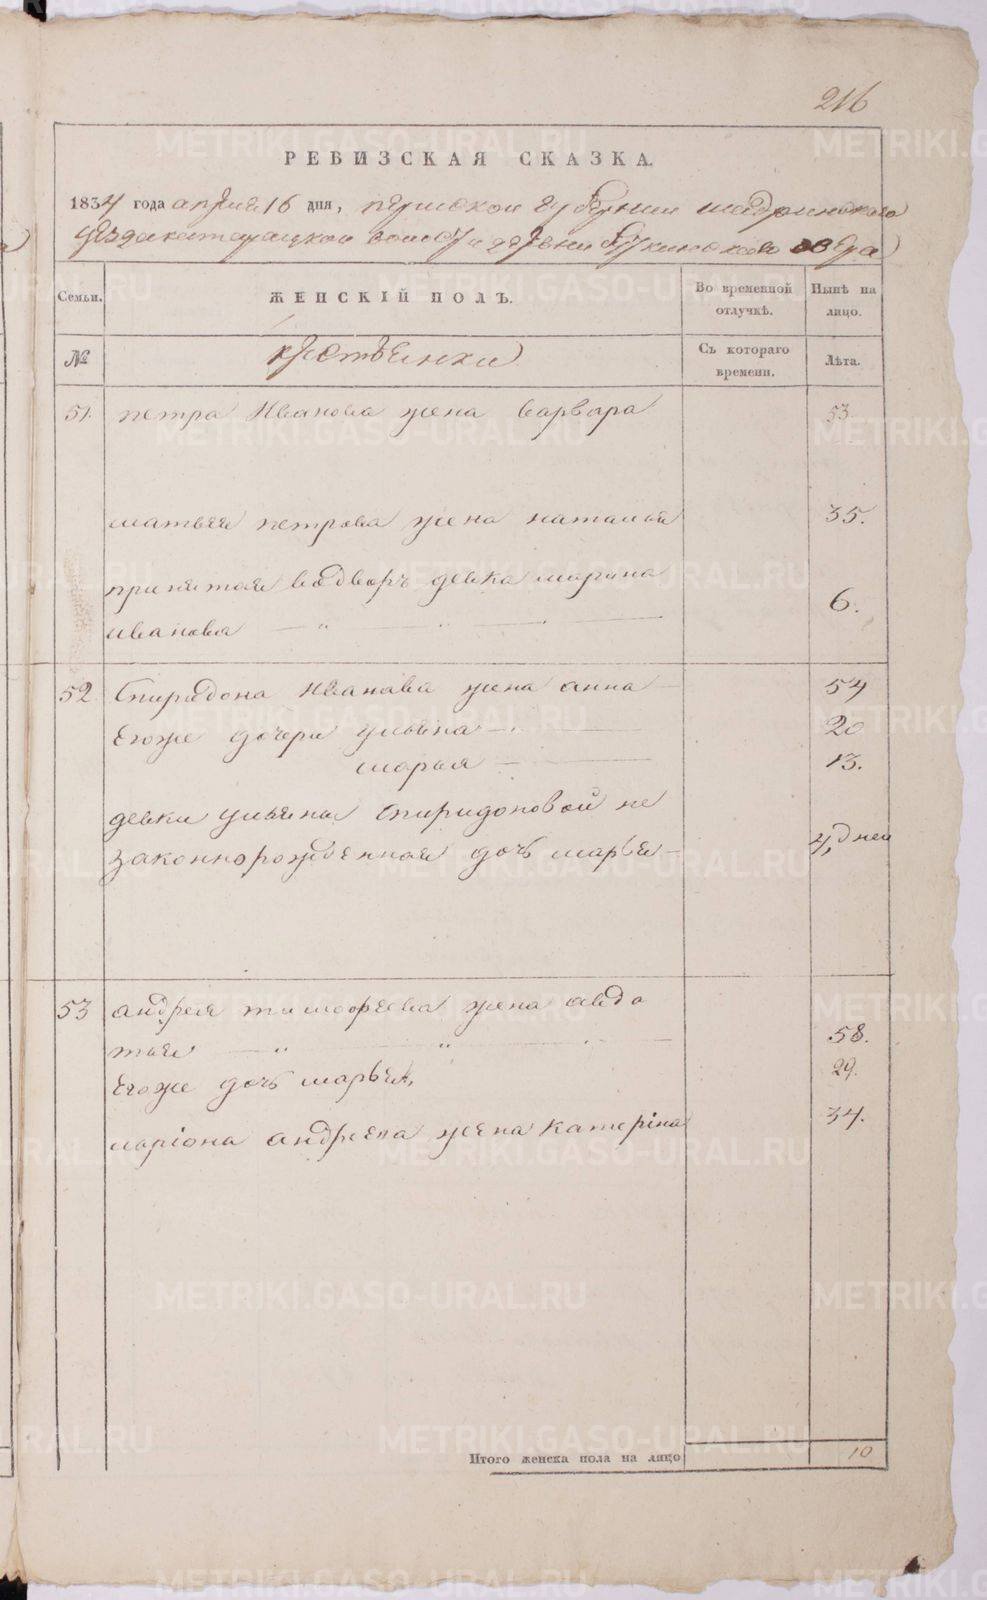 216
РЕВИЗСКАЯ СКАЗКА.
1834 года апреля 16 дня, пермской губернии шадринского
уезда катарацкой волости деревни озера
Семьи. ЖЕНСКІЙ ПОЛЪ. Во временной отлучкѣ. Нынѣ на лицо.
№ крестьянки Съ котораго времени. Лѣта.
51. петра Иванова жена варвара 53
матвея петрова жена наталья 35.
принятая вдворъ девка марина
иванова 6.
52 Спиридона Иванава жена анна 54
Егоже дочери ульяна 20
марья 13.
девки ульяны спиридоновой не
законнорожденная дочь марья 4, дней
53 андрея тимофеева жена авдо
тья 58.
Егоже дочь марья, 29.
ларіона андреева жена катеріна 34.
Итого женска пола на лицо 10
METRIKI.GASO-URAL.RU